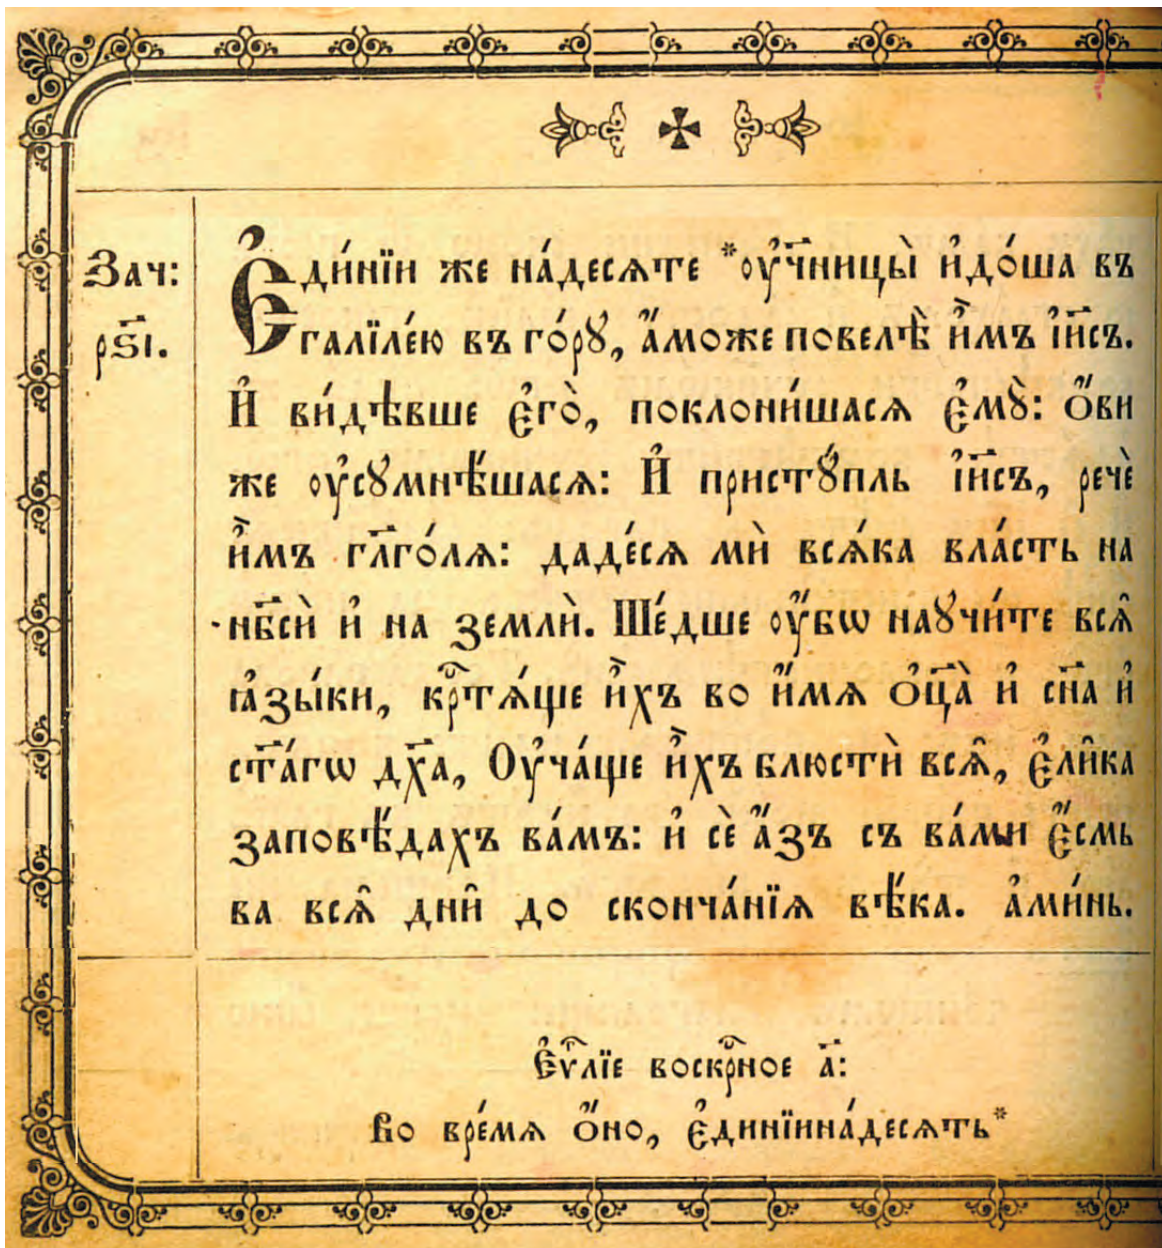 Зач:
рѕ҃і.
Є҆ди́нїи же на́десѧте *ᲂу҆чн҃цы̀ и҆до́ша въ
галїле́ю въ го́рꙋ, а҆́може повелѣ̀ и҆̀мъ і҆и҃съ.
И҆ ви́дѣвше є҆го̀, поклони́шасѧ є҆мꙋ̀: ѻ҆́ви
же ᲂу҆сꙋмнѣ́шасѧ: И҆ пристꙋ́пль і҆и҃съ, речѐ
и҆̀мъ гл҃го́лѧ: даде́сѧ мѝ всѧ́ка вла́сть на
нб҃сѝ и҆ на землѝ. Ше́дше ᲂу҆́бѡ наꙋчи́те всѧ̑
ꙗ҆зы́ки, крⷭ҇тѧ́ще и҆̀хъ во и҆́мѧ ѻ҆ц҃а̀ и҆ сн҃а и҆
ст҃а́гѡ дх҃а, Оу҆ча́ще и҆̀хъ блюстѝ всѧ̑, є҆ли̑ка
заповѣ́дахъ ва́мъ: и҆ сѐ а҆́зъ съ ва́ми є҆́смь
ва всѧ̑ дни̑ до сконча́нїѧ вѣ́ка. а҆ми́нь.
Є҆ѵⷢ҇лїе воскрⷭ҇ное а҃:
Во вре́мѧ ѻ҆́но, є҆динїинна́десѧть*